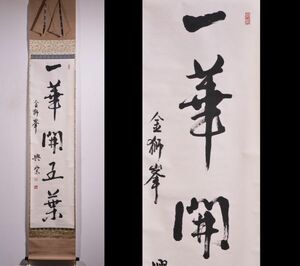 一華開五葉
金獅峯
興宗
一華開
金獅峯
興